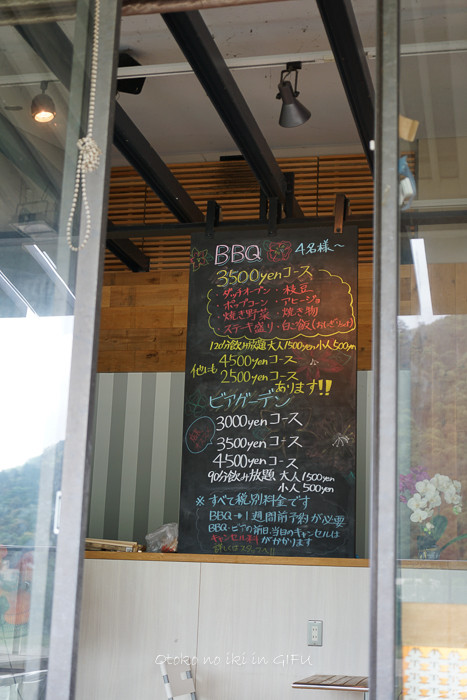 BBQ 4名様〜
3500yenコース
・ダッチオーブン・枝豆
・ポップコーン・アヒージョ
・焼き野菜・焼き物
・ステーキ盛り・白ご飯
120分飲み放題 大人1500yen 小人500yen
他にも
4500yenコース
2500yenコース
あります!!
ビアガーデン
3000yenコース
3500yenコース
4500yenコース
90分飲み放題 大人1500yen
小人500yen
※すべて税別料金です
BBQ→1週間前予約が必要
BBQ・ビアの前日、当日のキャンセルは
キャンセル料がかかります
詳しくはスタッフへ!!
Otoko no iki in GIFU